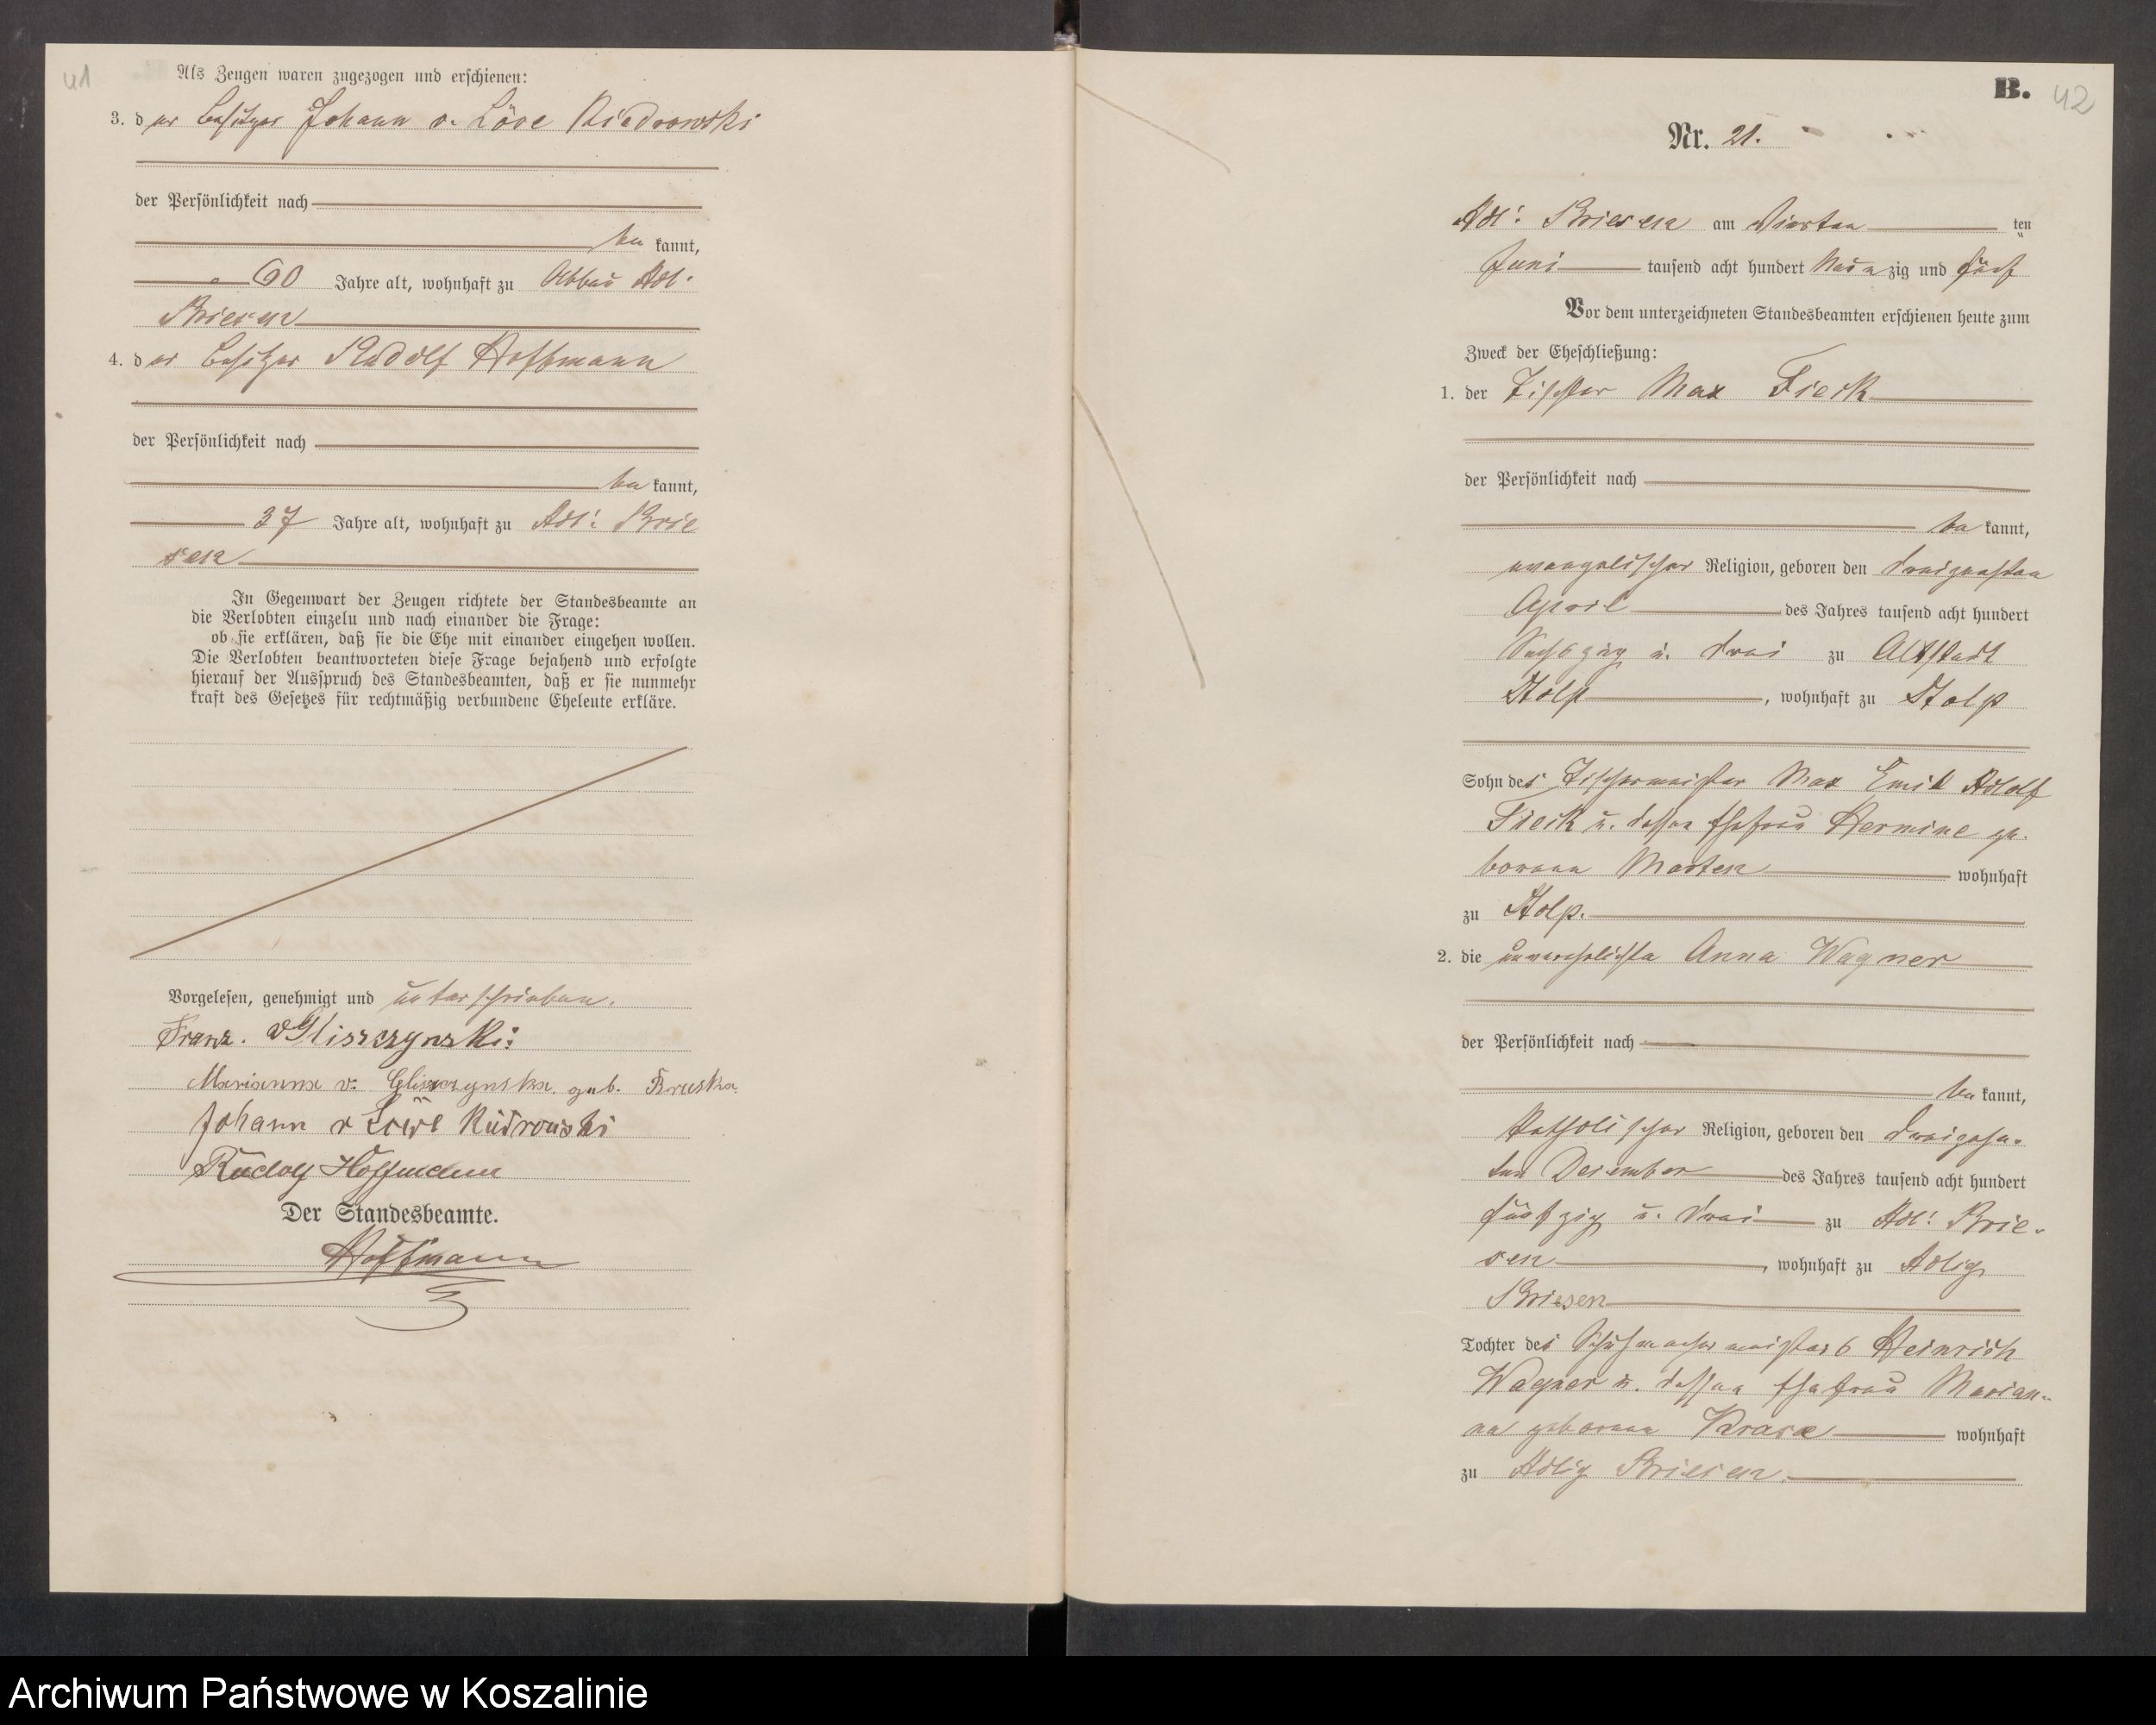 41
Als Zeugen waren zugezogen und erschienen:
3. der Besitzer Johann v. Löve Kiedrowski
der Persönlichkeit nach
be kannt,
60 Jahre alt, wohnhaft zu Abbau Adl.
Briesen
4. der Besitzer Rudolf Hoffmann
der Persönlichkeit nach
be kannt,
37 Jahre alt, wohnhaft zu Adl. Brie
sen
In Gegenwart der Zeugen richtete der Standesbeamte an
die Verlobten einzeln und nach einander die Frage:
ob sie erklären, daß sie die Ehe mit einander eingehen wollen.
Die Verlobten beantworteten diese Frage bejahend und erfolgte
hierauf der Ausspruch des Standesbeamten, daß er sie nunmehr
kraft des Gesetzes für rechtmäßig verbundene Eheleute erkläre.
Vorgelesen, genehmigt und unterschrieben.
Franz. v Gliszczynski
Marianna v. Gliszczynska geb. Bruska
Johann v Löwe Kiedrowski
Rudolf Hoffmann
Der Standesbeamte.
Hoffmann
B. 42
Nr. 21.
Adl. Briesen am Vierten ten
Juni tausend acht hundert Neunzig und fünf
Vor dem unterzeichneten Standesbeamten erschienen heute zum
Zweck der Eheschließung:
1. der Tischler Max Fieck
der Persönlichkeit nach
be kannt,
evangelischer Religion, geboren den dreizehnten
April des Jahres tausend acht hundert
Sechszig u. drei zu Altstadt
Stolp, wohnhaft zu Stolp
Sohn des Tischlermeister Max Emil Adolf
Fieck u. dessen Ehefrau Hermine ge-
borenen Marten wohnhaft
zu Stolp.
2. die unverehelichte Anna Wagner
der Persönlichkeit nach
be kannt,
katholischer Religion, geboren den dreizehn-
ten Dezember des Jahres tausend acht hundert
fünfzig u. drei zu Adl. Brie-
sen, wohnhaft zu Adlig
Briesen
Tochter des Schuhmachermeisters Heinrich
Wagner u. dessen Ehefrau Marian-
na geborenen wohnhaft
zu Adlig Briesen.
Archiwum Państwowe w Koszalinie